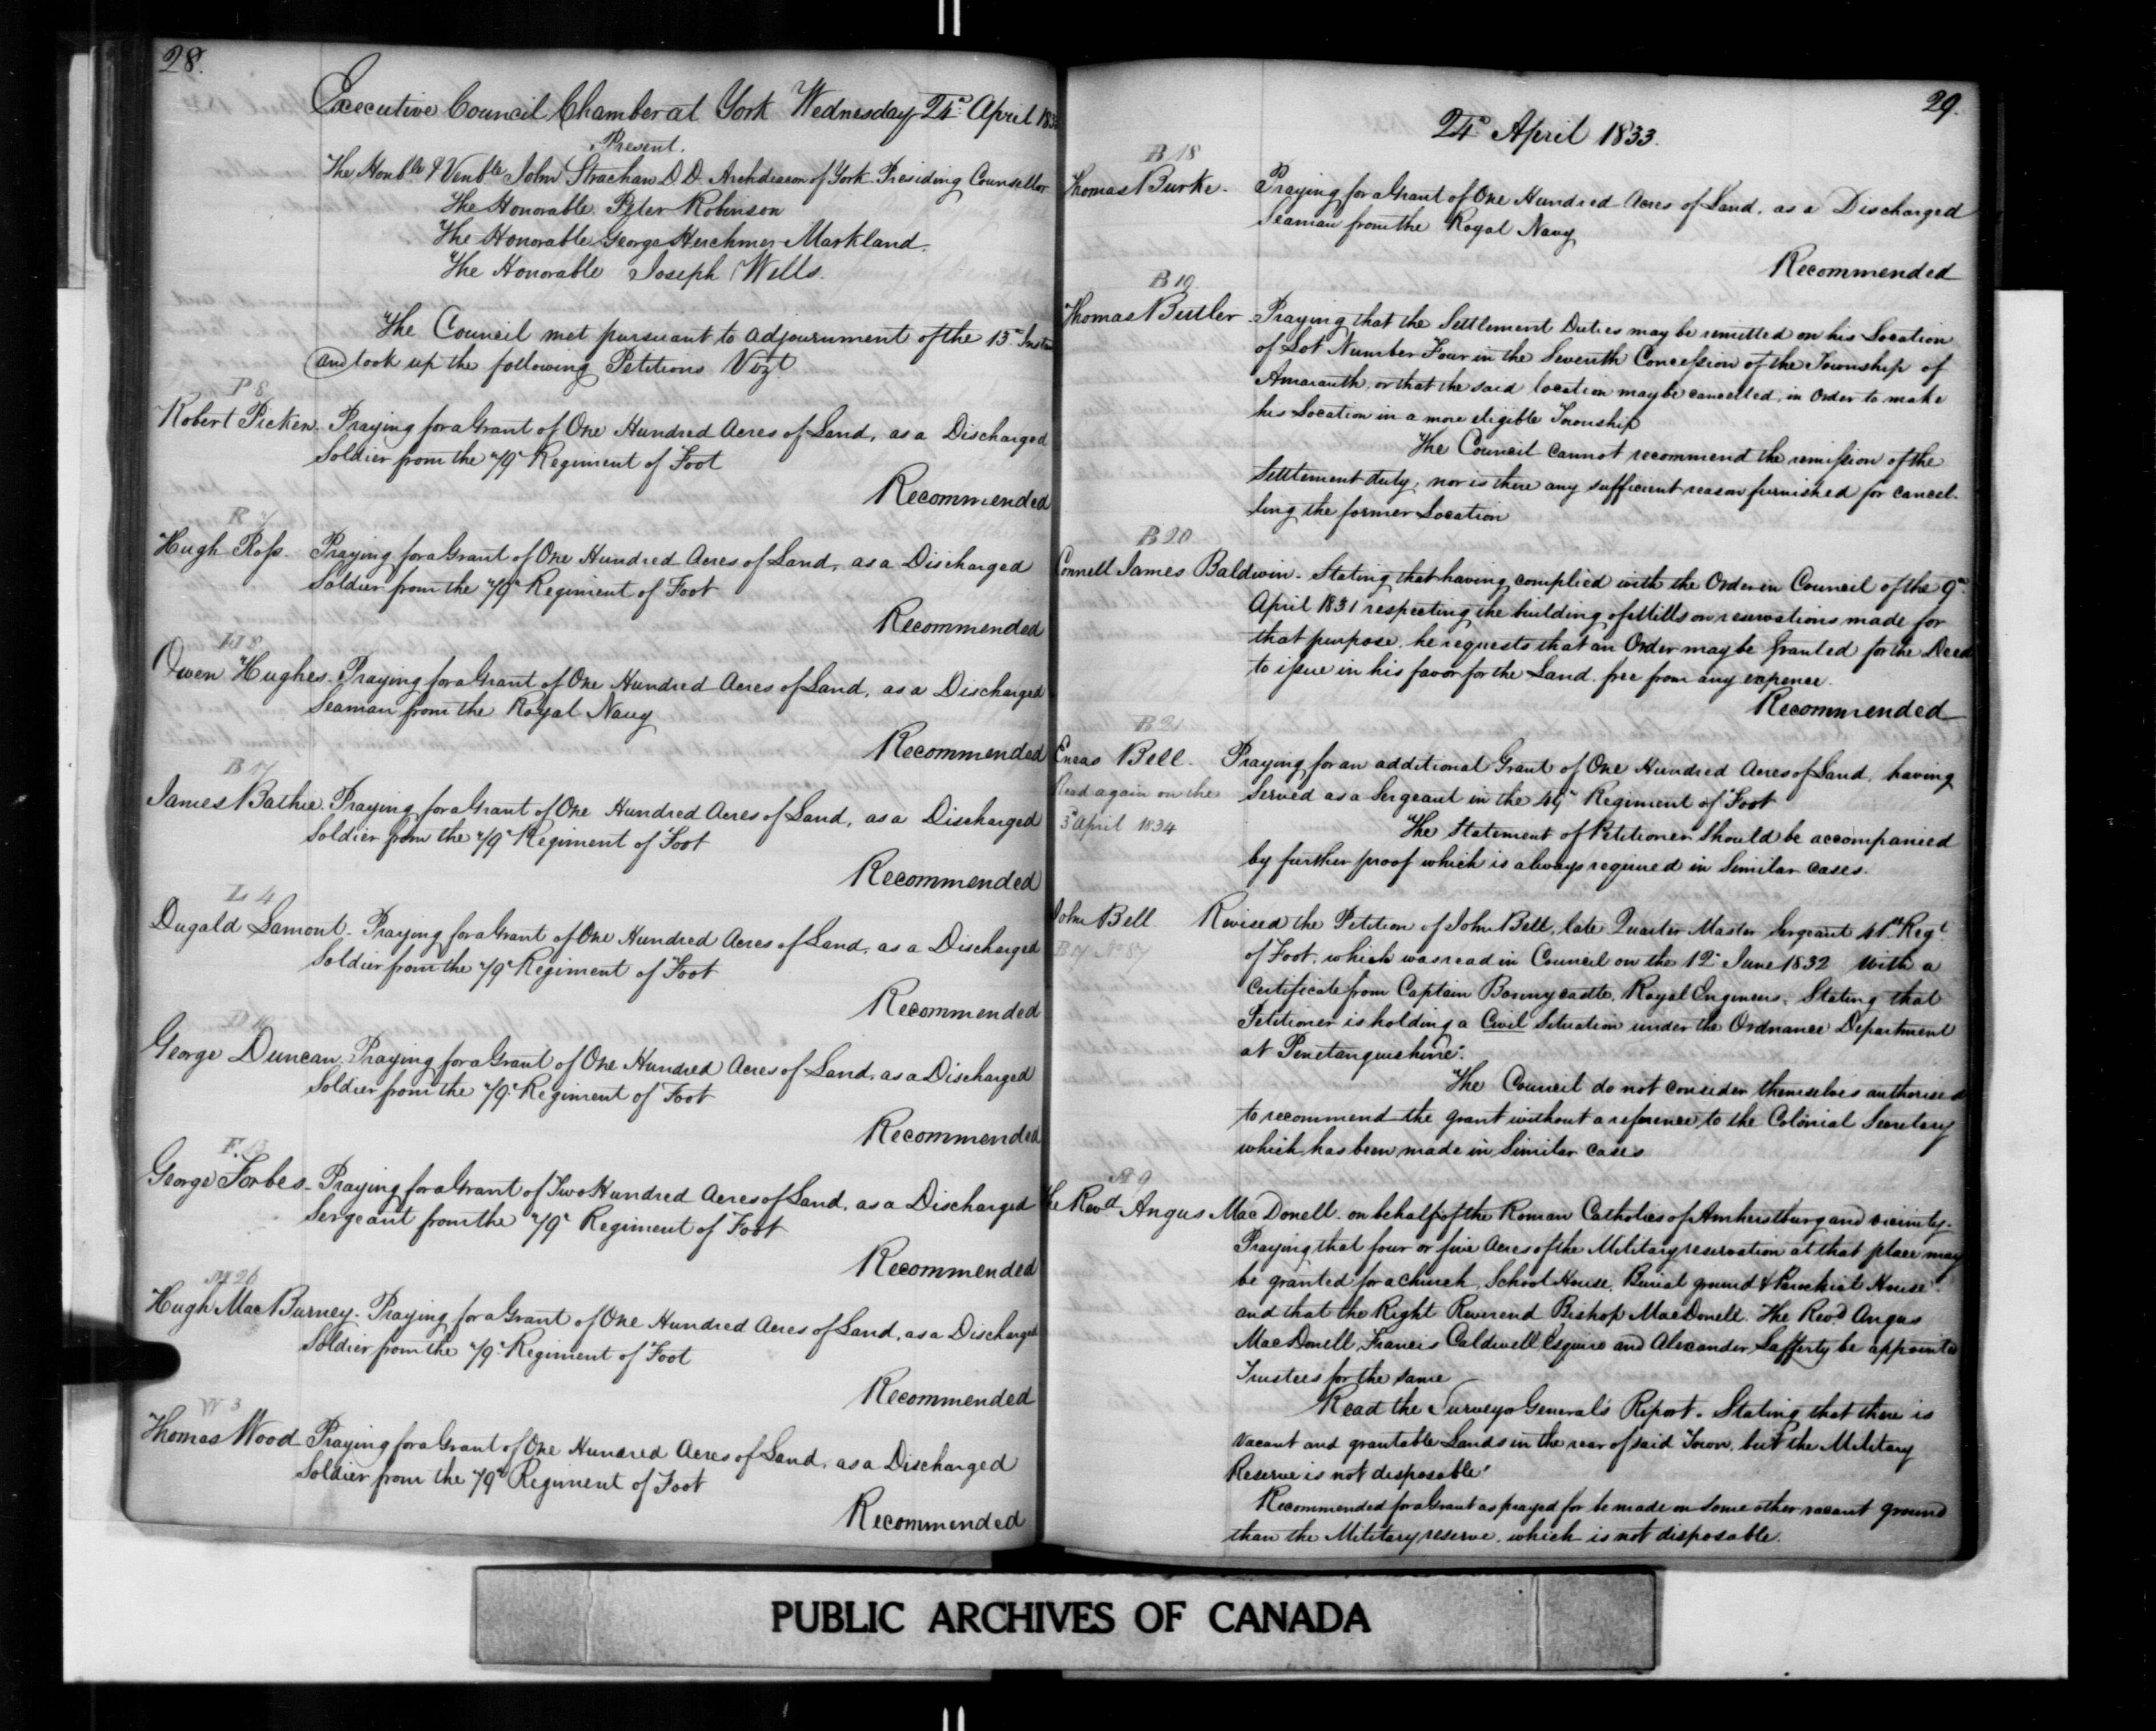 28.
Executive Council Chamber at York Wednesday 24th April 183
Present.
The Honble & Venble John Strachan D.D. Archdeacon of York Presiding Counsellor
The Honorable Peter Robinson
The Honorable George Herchmer Markland.
The Honorable Joseph Wells.
The Council met pursuant to adjournment of the 15th Inst
and took up the following Petitions Vizt
P 8
Robert Picken. Praying for a Grant of One Hundred Acres of Land, as a Discharged
Soldier from the 79th Regiment of Foot
Recommended
R 7
Hugh Ross Praying for a Grant of One Hundred Acres of Land, as a Discharged
Soldier from the 79th Regiment of Foot
Recommended
H 8
Owen Hughes. Praying for a Grant of One Hundred Acres of Land, as a Discharged
Seaman from the Royal Navy
Recommended
B 17
James Bathie. Praying for a Grant of One Hundred Acres of Land, as a Discharged
Soldier from the 79th Regiment of Foot
Recommended
L 4
Dugald Lamont. Praying for a Grant of One Hundred Acres of Land, as a Discharged
Soldier from the 79th Regiment of Foot
Recommended
George Duncan. Praying for a Grant of One Hundred Acres of Land, as a Discharged
Soldier from the 79th Regiment of Foot
Recommended
F.
George Forbes. Praying for a Grant of Two Hundred Acres of Land, as a Discharged
Sergeant from the 79th Regiment of Foot
Recommended
M 26
Hugh MacBurney. Praying for a Grant of One Hundred Acres of Land, as a Discharged
Soldier from the 79th Regiment of Foot
Recommended
W 3
Thomas Wood Praying for a Grant of One Hundred Acres of Land, as a Discharged
Soldier from the 79th Regiment of Foot
Recommended
29.
24th April 1833.
B 18
Thomas Burke. Praying for a Grant of One Hundred Acres of Land, as a Discharged
Seaman from the Royal Navy
Recommended
B 19
Thomas Butler. Praying that the Settlement Duties may be remitted on his Location
of Lot Number Four in the Seventh Concession of the Township of
Amaranth, or that the said location may be cancelled, in order to make
his Location in a more eligible Township
The Council cannot recommend the remission of the
Settlement duty, nor is there any sufficient reason furnished for cancel-
ling the former Location
B 20
Connell James Baldwin. Stating that having complied with the Order in Council of the 9th
April 1831 respecting the building of Mills on reservations made for
that purpose, he requests that an Order may be granted for the Deed
to issue in his favor for the Land, free from any expence.
Recommended
B 21
Eneas Bell. Praying for an additional Grant of One Hundred Acres of Land, having
Read again on the Served as a Sergeant in the 49th Regiment of Foot
3d April 1834 The Statement of Petitioner should be accompanied
by further proof which is always required in Similar cases.
John Bell. Revised the Petition of John Bell, late Quarter Master Sergeant 41st Regt
B 17 No 87 of Foot, which was read in Council on the 12th June 1832 With a
Certificate from Captain Bonnycastle, Royal Engineers, Stating that
Petitioner is holding a Civil Situation under the Ordnance Department
at Penetanguishine.
The Council do not consider themselves authorised
to recommend the grant without a reference to the Colonial Secretary
which has been made in Similar cases
The Revd Angus MacDonell. on behalf of the Roman Catholics of Amherstburg and vicinity.
Praying that four or five Acres of the Military reservation at that place may
be granted for a Church, School House, Burial ground & Parochial House
and that the Right Reverend Bishop MacDonell. The Revd Angus
MacDonell, Francis Caldwell Esquire and Alexander Lafferty be appointed
Trustees for the same
Read the Surveyor General's Report. Stating that there is
vacant and grantable Lands in the rear of said Town, but the Military
Reserve is not disposable.
Recommended for a Grant as prayed for be made on some other vacant ground
than the Military reserve, which is not disposable.
PUBLIC ARCHIVES OF CANADA